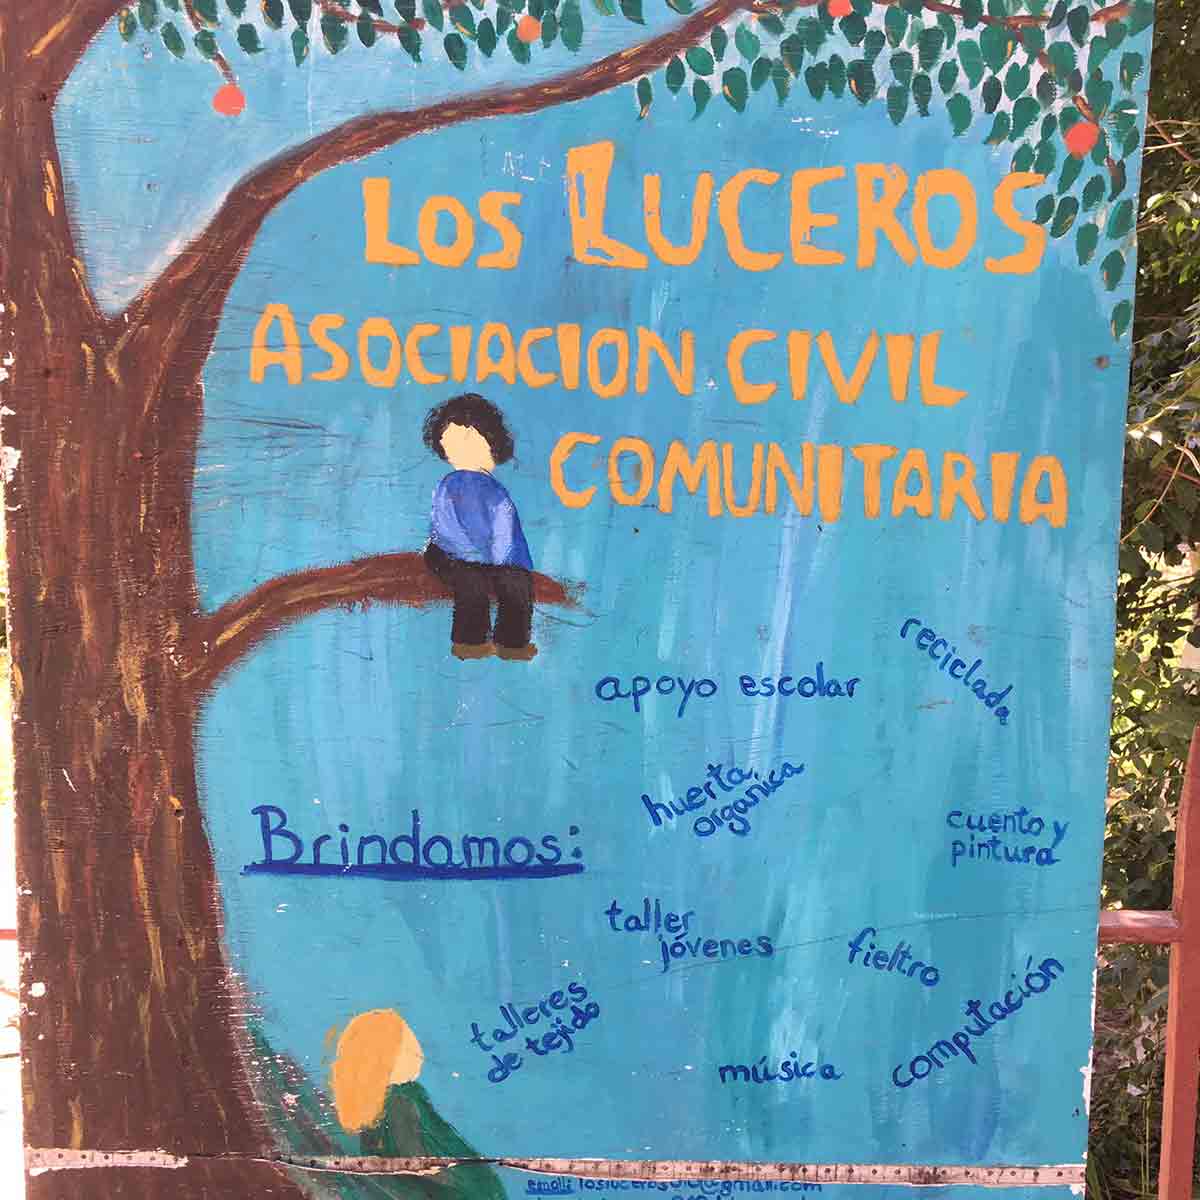 LOS LUCEROS
ASOCIACION CIVIL
COMUNITARIA
apoyo escolar
reciclada
huerta
organica
cuento y
pintura
Brindamos:
taller
jóvenes
fieltro
talleres
de tejido
música
computación
email: